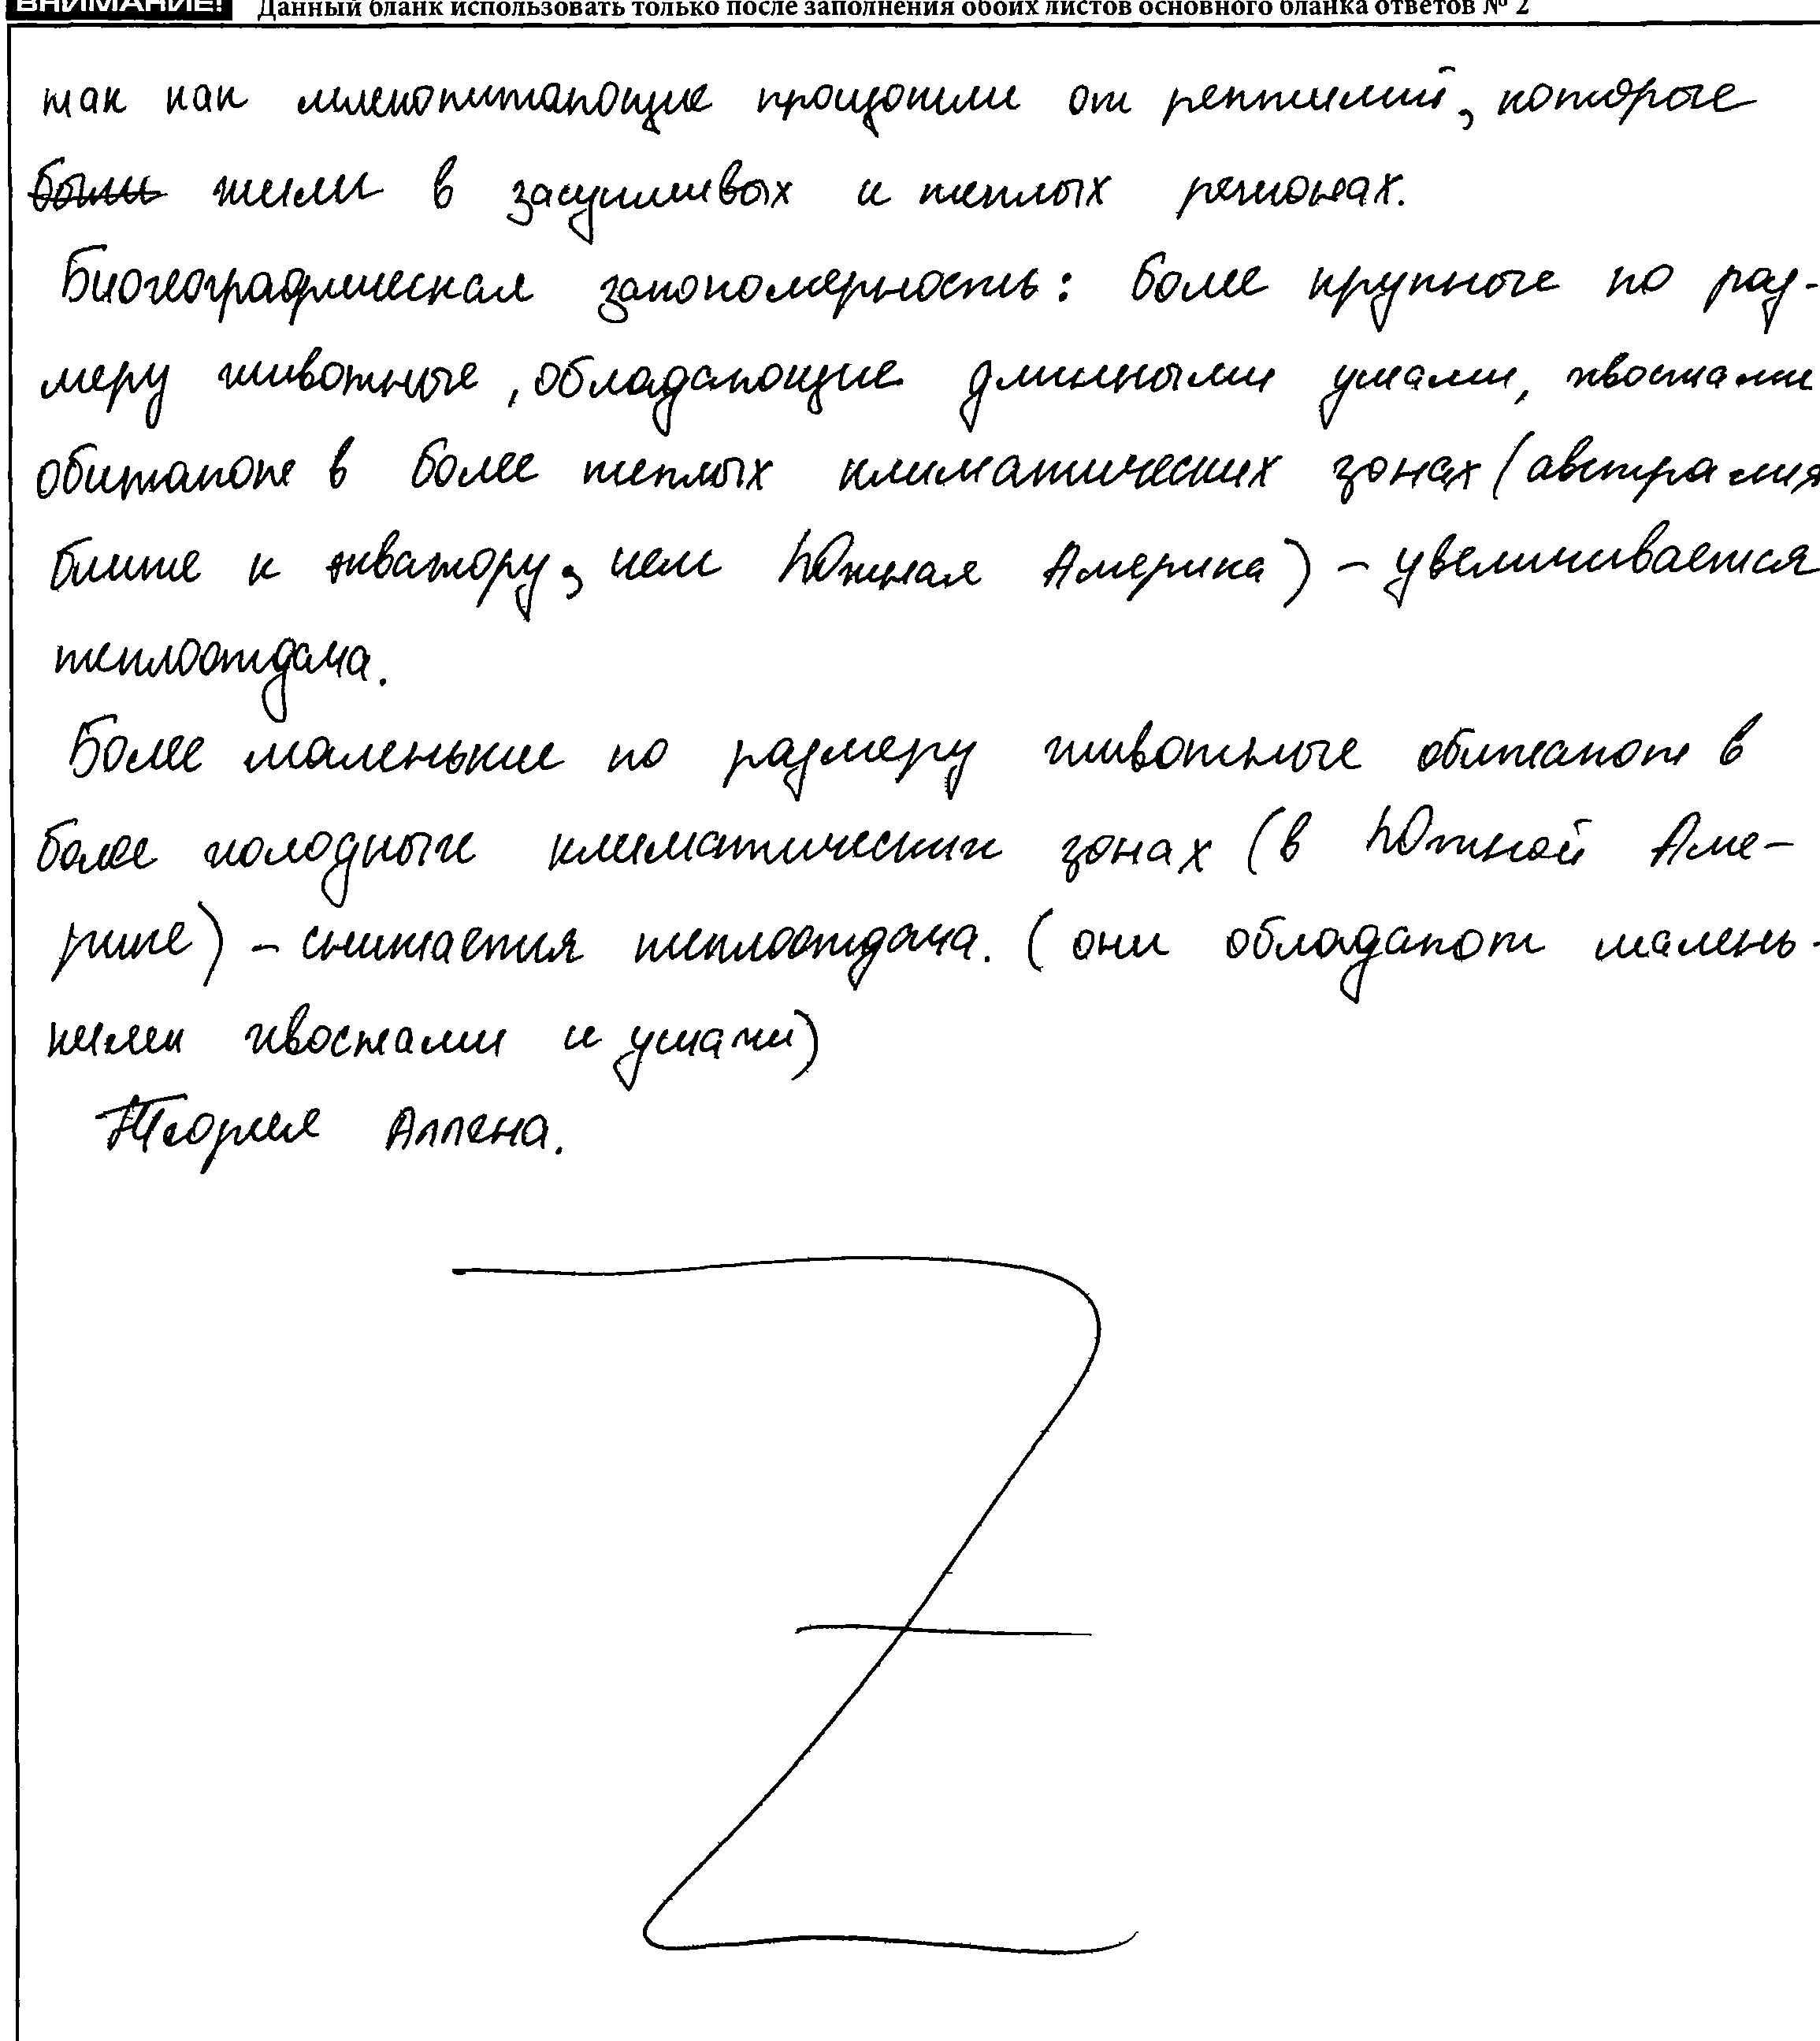 ВНИМАНИЕ! Данный бланк использовать только после заполнения обоих листов основного бланка ответов № 2
так как млекопитающие произошли от рептилий, которые
были жили в засушливых и теплых регионах.
Биогеографическая закономерность: более крупные по раз-
меру животные, обладающие длинными ушами, хвостами
обитают в более теплых климатических зонах (австралия
ближе к экватору, чем Южная Америка) – увеличивается
теплоотдача.
Более маленькие по размеру животные обитают в
более холодных климатических зонах (в Южной Аме-
рике) – снижается теплоотдача. (они обладают малень-
кими хвостами и ушами)
Теория Аллена.
Z